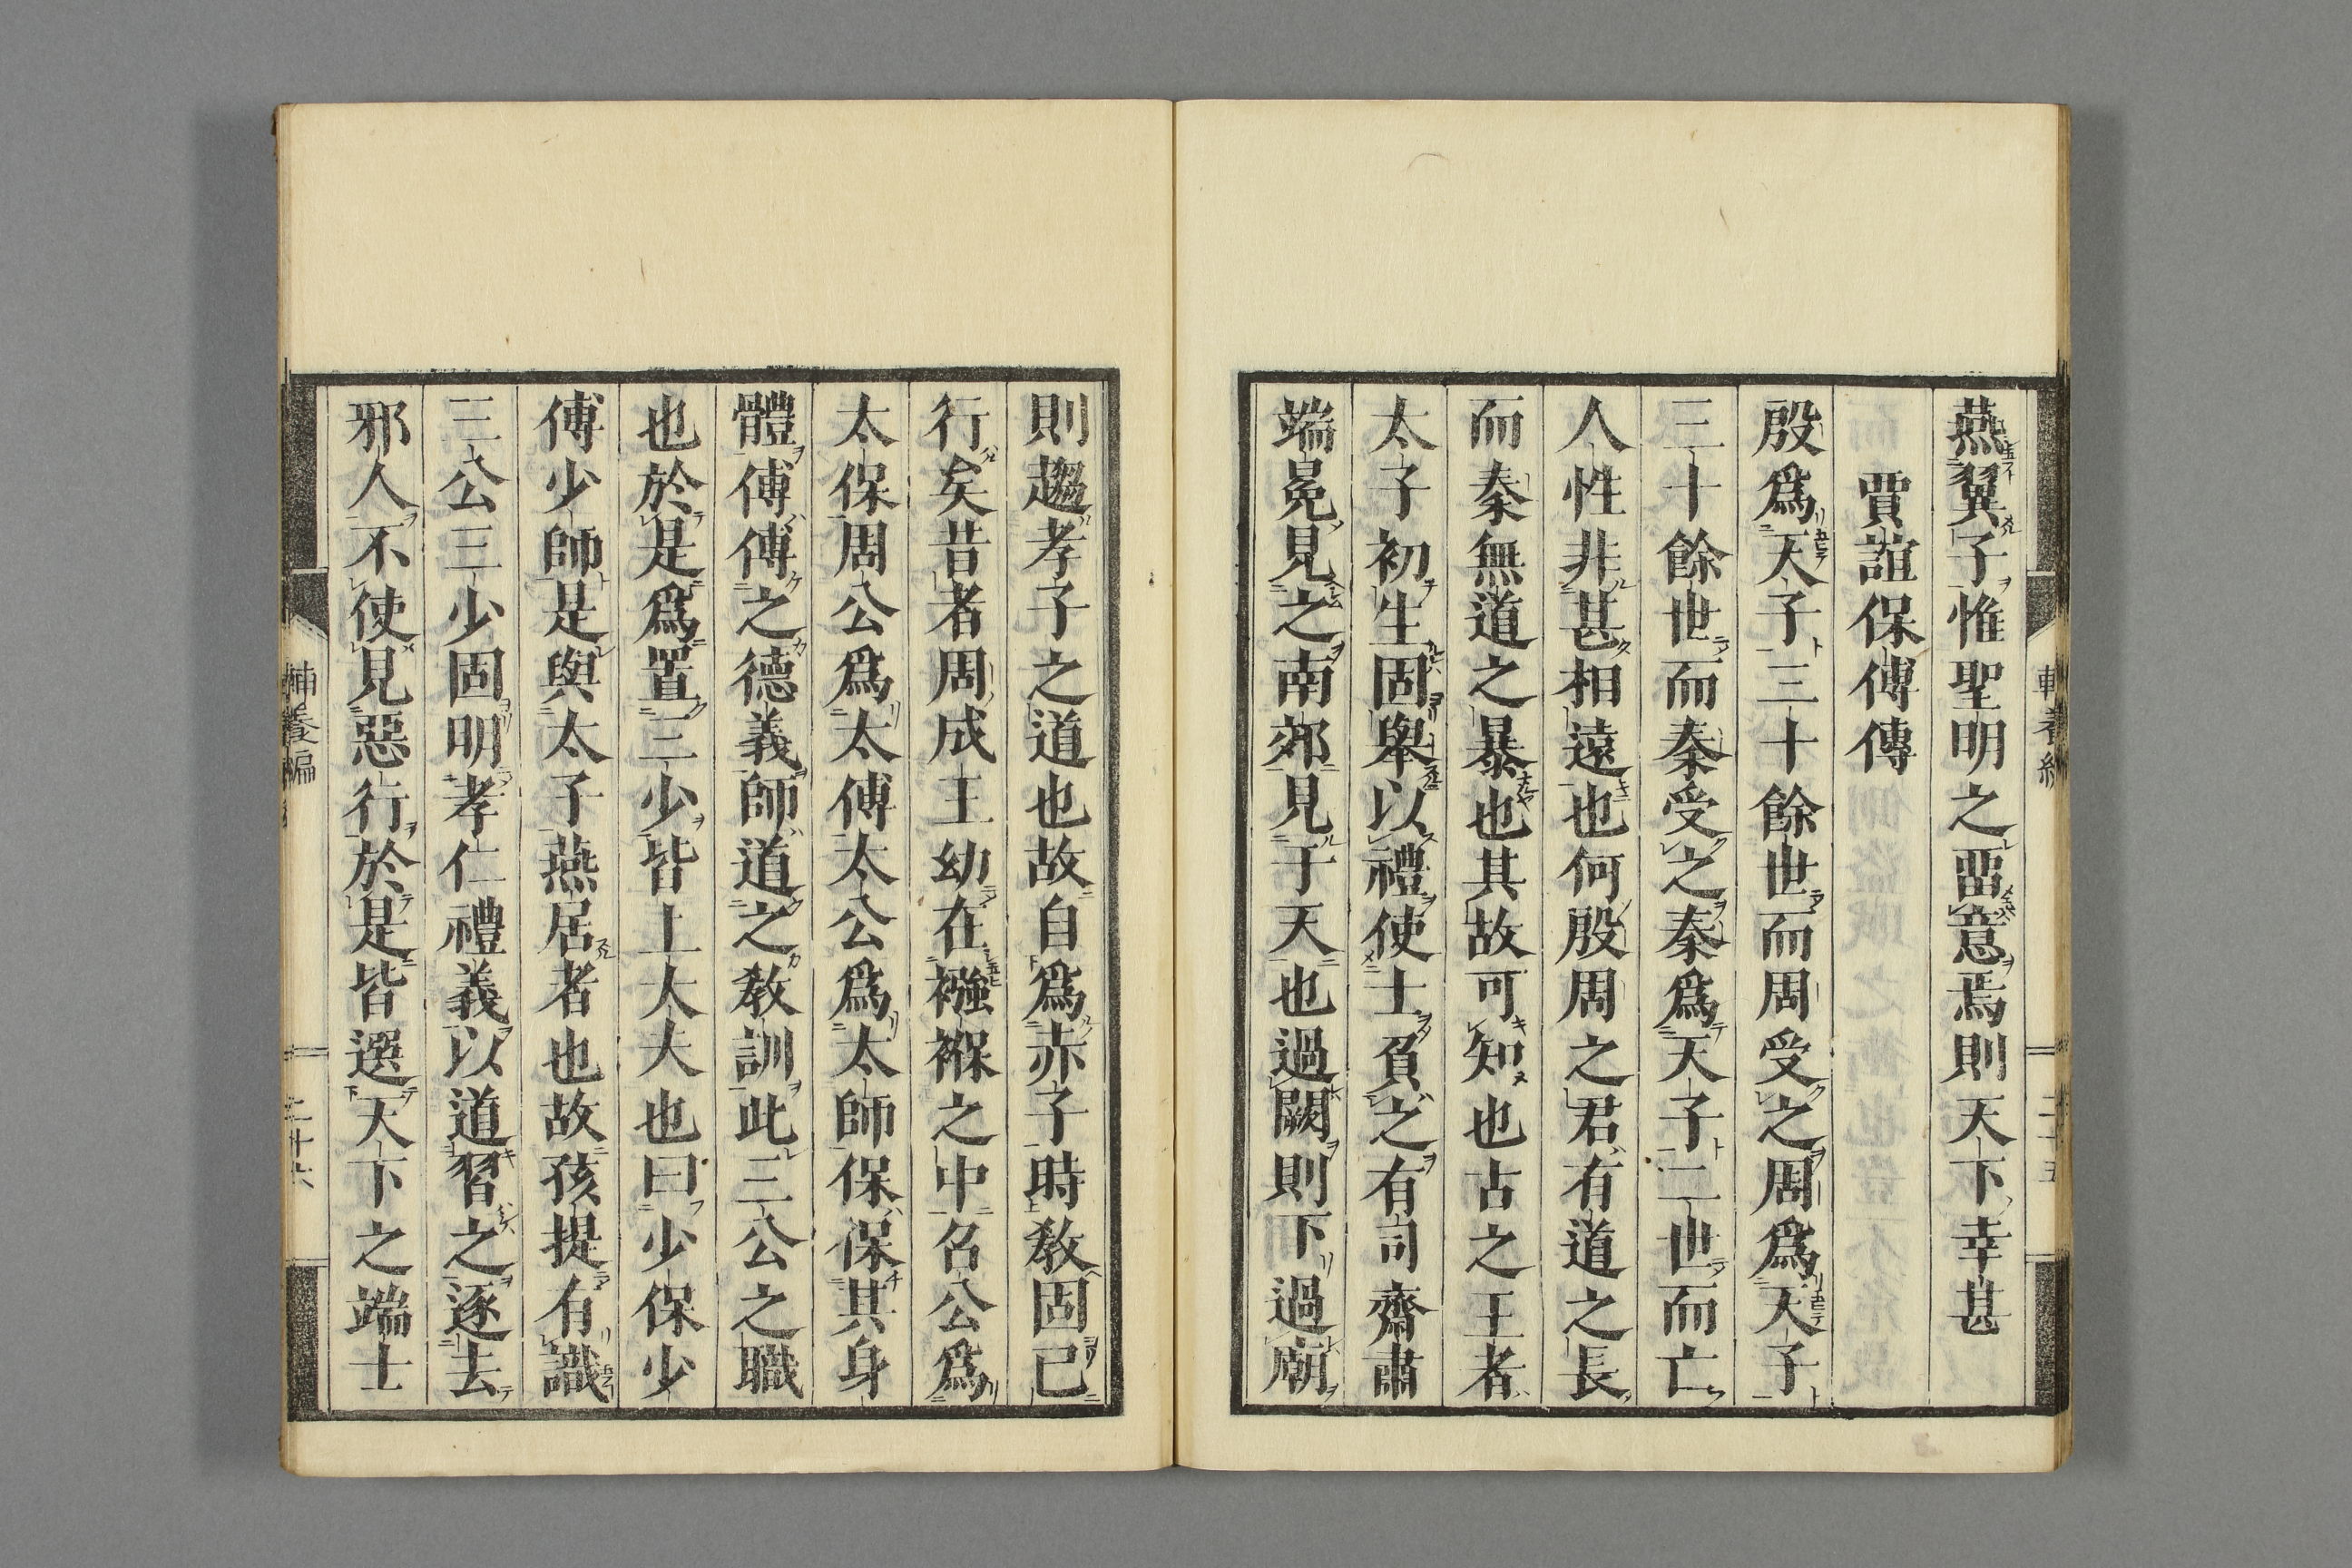 燕翼子惟聖明之畱意焉則天下幸甚
賈誼保傅傳
殷爲天子三十餘世而周受之周爲天子
三十餘世而秦受之秦爲天子二世而亡
人性非甚相遠也何殷周之君有道之長
而秦無道之暴也其故可知也古之王者
太子初生固舉以禮使士負之有司齋肅
端冕見之南郊見于天也過闕則下過廟
則趨孝子之道也故自爲赤子時教固已
行矣昔者周成王幼在襁褓之中召公爲
太保周公爲太傅太公爲太師保保其身
體傅傅之德義師道之教訓此三公之職
也於是爲置三少皆上大夫也曰少保少
傅少師是與太子燕居者也故孩提有識
三公三少固明孝仁禮義以道習之逐去
邪人不使見惡行於是皆選天下之端士
輔養編
二十六